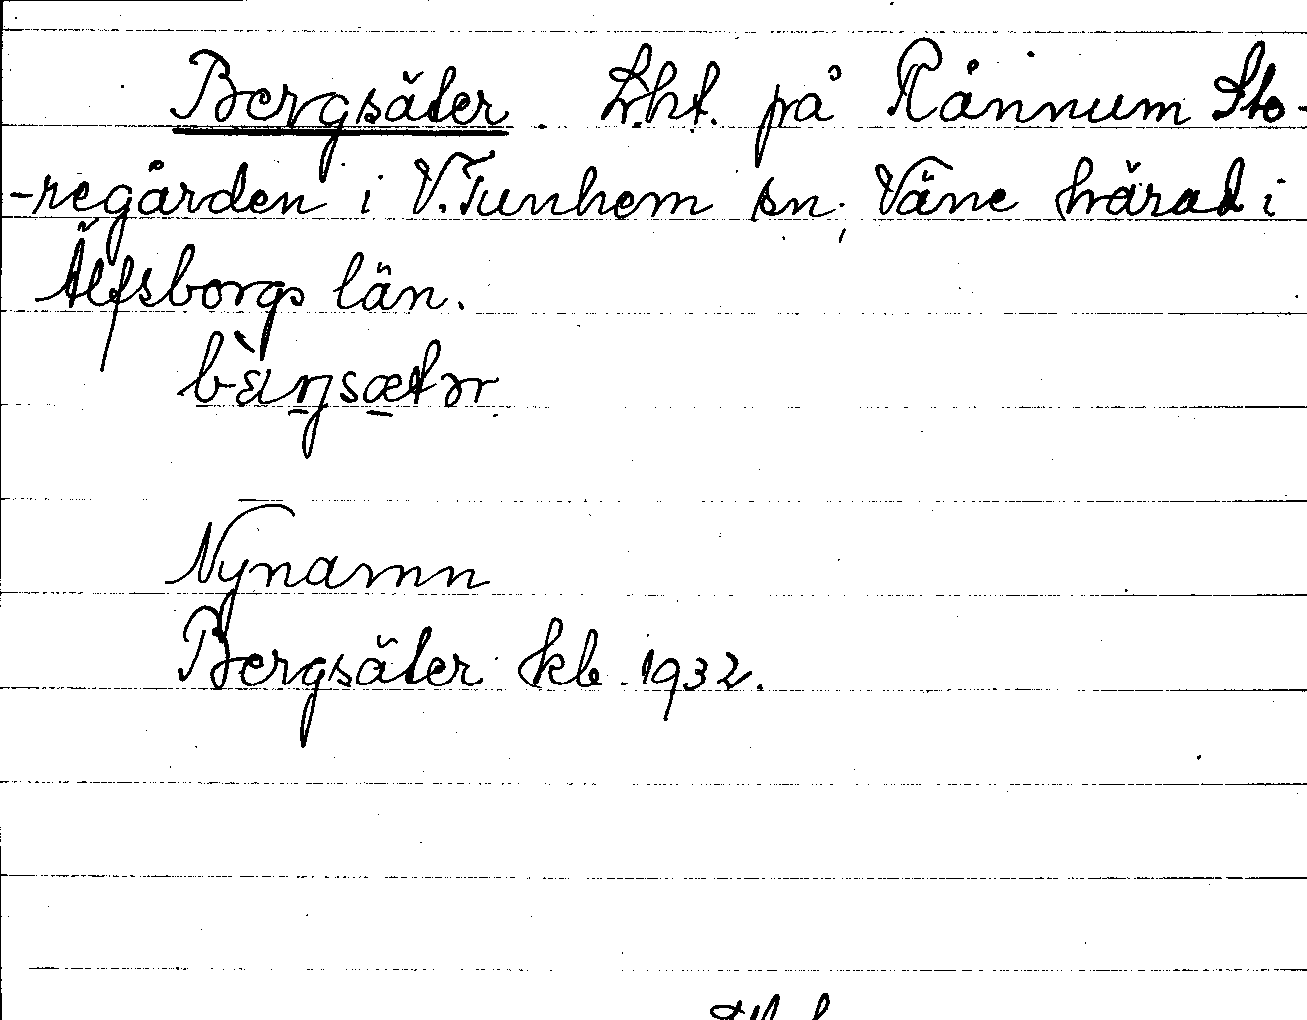 Bergsäter. Lht. på Rånnum Sto-
-regården i V.Tunhem sn, Väne härad i
Älfsborgs län.
Nynamn
Bergsäter kb 1932.